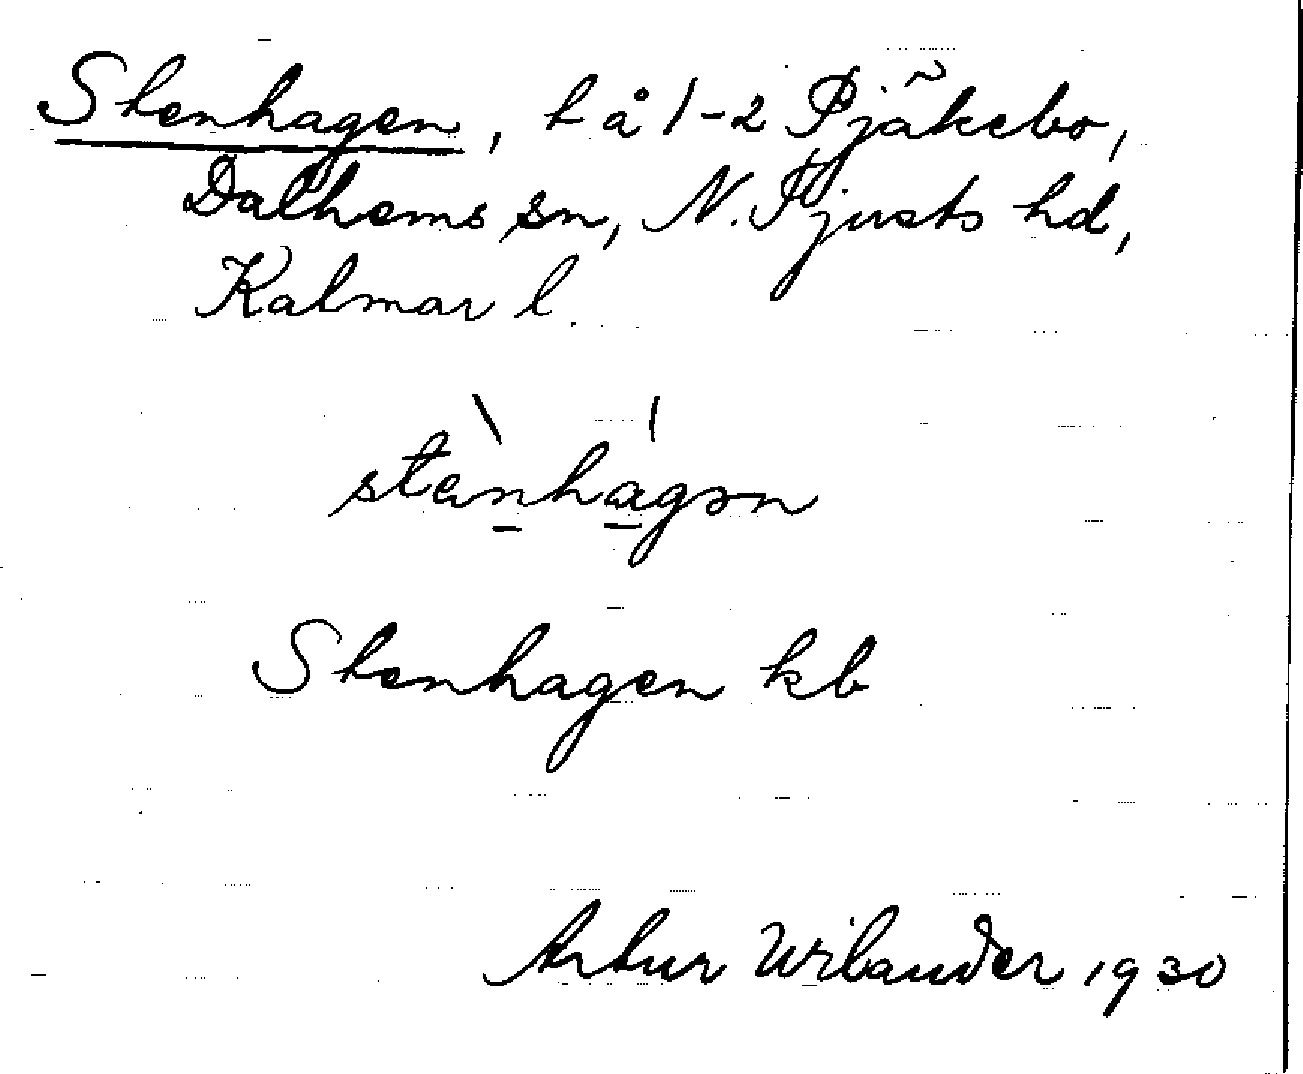 Stenhagen, t å 1-2 Tjäkebo,
Dalhems sn, N. Tjusts hd,
Kalmar l.
stenhagən
Stenhagen kb
Artur Wilander 1930